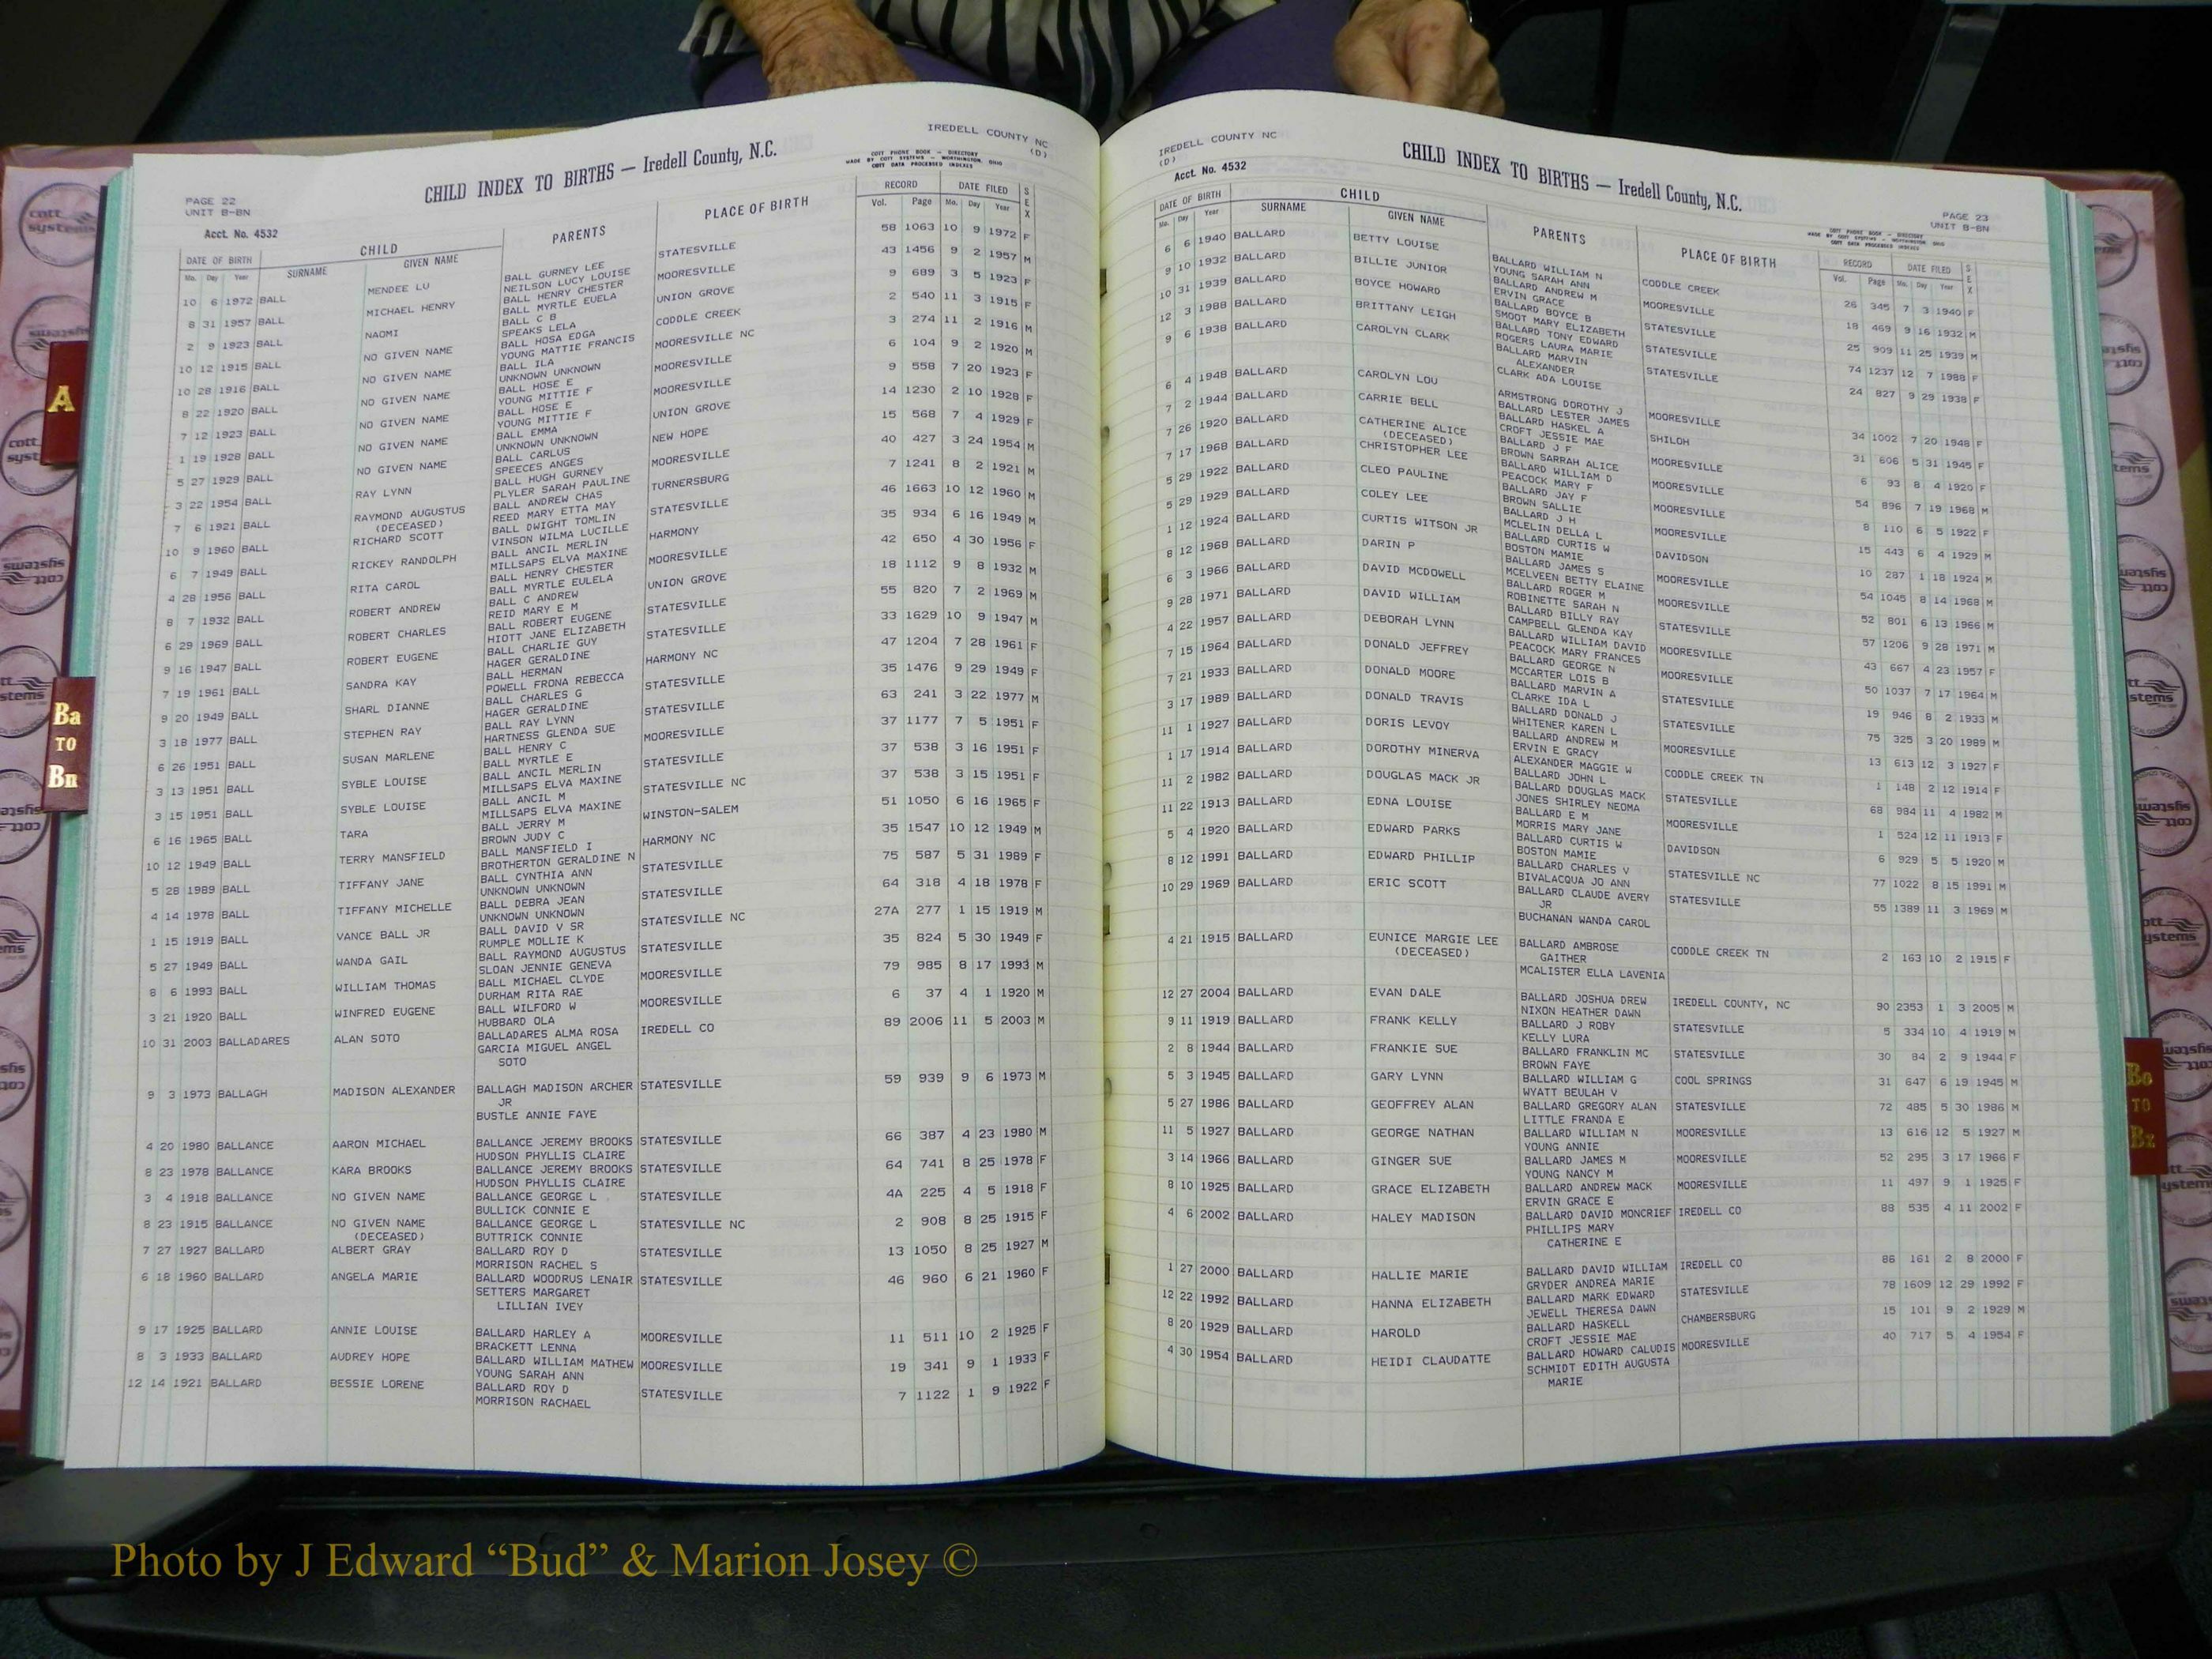 IREDELL COUNTY NC
(D)
CHILD INDEX TO BIRTHS — Iredell County, N.C.
COTT PHONE BOOK — DIRECTORY
MADE BY COTT SYSTEMS — WORTHINGTON, OHIO
COTT DATA PROCESSED INDEXES
PAGE 22
UNIT B-BN
Acct. No. 4532
DATE OF BIRTH CHILD PARENTS PLACE OF BIRTH RECORD DATE FILED SEX
Mo. Day Year SURNAME GIVEN NAME Vol. Page Mo. Day Year
10 6 1972 BALL MENDEE LU BALL GURNEY LEE STATESVILLE 58 1063 10 9 1972 F
NEILSON LUCY LOUISE
8 31 1957 BALL MICHAEL HENRY BALL HENRY CHESTER MOORESVILLE 43 1456 9 2 1957 M
BALL MYRTLE EUELA
2 9 1923 BALL NAOMI BALL C B UNION GROVE 9 689 3 5 1923 F
SPEAKS LELA
10 12 1915 BALL NO GIVEN NAME BALL HOSA EDGA CODDLE CREEK 2 540 11 3 1915 F
YOUNG MATTIE FRANCIS
10 28 1916 BALL NO GIVEN NAME BALL ILA MOORESVILLE NC 3 274 11 2 1916 M
UNKNOWN UNKNOWN
8 22 1920 BALL NO GIVEN NAME BALL HOSE E MOORESVILLE 6 104 9 2 1920 M
YOUNG MITTIE F
7 12 1923 BALL NO GIVEN NAME BALL HOSE E MOORESVILLE 9 558 7 20 1923 F
YOUNG MITTIE F
1 19 1928 BALL NO GIVEN NAME BALL EMMA UNION GROVE 14 1230 2 10 1928 F
UNKNOWN UNKNOWN
5 27 1929 BALL NO GIVEN NAME BALL CARLUS NEW HOPE 15 568 7 4 1929 F
SPEECES ANGES
3 22 1954 BALL RAY LYNN BALL HUGH GURNEY MOORESVILLE 40 427 3 24 1954 M
PLYLER SARAH PAULINE
7 6 1921 BALL RAYMOND AUGUSTUS BALL ANDREW CHAS TURNERSBURG 7 1241 8 2 1921 M
(DECEASED) REED MARY ETTA MAY
10 9 1960 BALL RICHARD SCOTT BALL DWIGHT TOMLIN STATESVILLE 46 1663 10 12 1960 M
VINSON WILMA LUCILLE
6 7 1949 BALL RICKEY RANDOLPH BALL ANCIL MERLIN HARMONY 35 934 6 16 1949 M
MILLSAPS ELVA MAXINE
4 28 1956 BALL RITA CAROL BALL HENRY CHESTER MOORESVILLE 42 650 4 30 1956 F
BALL MYRTLE EULELA
8 7 1932 BALL ROBERT ANDREW BALL C ANDREW UNION GROVE 18 1112 9 8 1932 M
REID MARY E M
6 29 1969 BALL ROBERT CHARLES BALL ROBERT EUGENE STATESVILLE 55 820 7 2 1969 M
HIOTT JANE ELIZABETH
9 16 1947 BALL ROBERT EUGENE BALL CHARLIE GUY STATESVILLE 33 1629 10 9 1947 M
HAGER GERALDINE
7 19 1961 BALL SANDRA KAY BALL HERMAN HARMONY NC 47 1204 7 28 1961 F
POWELL FRONA REBECCA
9 20 1949 BALL SHARL DIANNE BALL CHARLES G STATESVILLE 35 1476 9 29 1949 F
HAGER GERALDINE
3 18 1977 BALL STEPHEN RAY BALL RAY LYNN STATESVILLE 63 241 3 22 1977 M
HARTNESS GLENDA SUE
6 26 1951 BALL SUSAN MARLENE BALL HENRY C MOORESVILLE 37 1177 7 5 1951 F
BALL MYRTLE E
3 13 1951 BALL SYBLE LOUISE BALL ANCIL MERLIN STATESVILLE 37 538 3 16 1951 F
MILLSAPS ELVA MAXINE
3 15 1951 BALL SYBLE LOUISE BALL ANCIL M STATESVILLE NC 37 538 3 15 1951 F
MILLSAPS ELVA MAXINE
6 16 1965 BALL TARA BALL JERRY M WINSTON-SALEM 51 1050 6 16 1965 F
BROWN JUDY C
10 12 1949 BALL TERRY MANSFIELD BALL MANSFIELD I HARMONY NC 35 1547 10 12 1949 M
BROTHERTON GERALDINE N
5 28 1989 BALL TIFFANY JANE BALL CYNTHIA ANN STATESVILLE 75 587 5 31 1989 F
UNKNOWN UNKNOWN
4 14 1978 BALL TIFFANY MICHELLE BALL DEBRA JEAN STATESVILLE 64 318 4 18 1978 F
UNKNOWN UNKNOWN
1 15 1919 BALL VANCE BALL JR BALL DAVID V SR STATESVILLE NC 27A 277 1 15 1919 M
RUMPLE MOLLIE K
5 27 1949 BALL WANDA GAIL BALL RAYMOND AUGUSTUS STATESVILLE 35 824 5 30 1949 F
SLOAN JENNIE GENEVA
8 6 1993 BALL WILLIAM THOMAS BALL MICHAEL CLYDE MOORESVILLE 79 985 8 17 1993 M
DURHAM RITA RAE
3 21 1920 BALL WINFRED EUGENE BALL WILFORD W MOORESVILLE 6 37 4 1 1920 M
HUBBARD OLA
10 31 2003 BALLADARES ALAN SOTO BALLADARES ALMA ROSA IREDELL CO 89 2006 11 5 2003 M
GARCIA MIGUEL ANGEL
SOTO
9 3 1973 BALLAGH MADISON ALEXANDER BALLAGH MADISON ARCHER STATESVILLE 59 939 9 6 1973 M
JR
BUSTLE ANNIE FAYE
4 20 1980 BALLANCE AARON MICHAEL BALLANCE JEREMY BROOKS STATESVILLE 66 387 4 23 1980 M
HUDSON PHYLLIS CLAIRE
8 23 1978 BALLANCE KARA BROOKS BALLANCE JEREMY BROOKS STATESVILLE 64 741 8 25 1978 F
HUDSON PHYLLIS CLAIRE
3 4 1918 BALLANCE NO GIVEN NAME BALLANCE GEORGE L STATESVILLE 4A 225 4 5 1918 F
BULLICK CONNIE E
8 23 1915 BALLANCE NO GIVEN NAME BALLANCE GEORGE L STATESVILLE NC 2 908 8 25 1915 F
(DECEASED) BUTTRICK CONNIE
7 27 1927 BALLARD ALBERT GRAY BALLARD ROY D STATESVILLE 13 1050 8 25 1927 M
MORRISON RACHEL S
6 18 1960 BALLARD ANGELA MARIE BALLARD WOODRUS LENAIR STATESVILLE 46 960 6 21 1960 F
SETTERS MARGARET
LILLIAN IVEY
9 17 1925 BALLARD ANNIE LOUISE BALLARD HARLEY A MOORESVILLE 11 511 10 2 1925 F
BRACKETT LENNA
8 3 1933 BALLARD AUDREY HOPE BALLARD WILLIAM MATHEW MOORESVILLE 19 341 9 1 1933 F
YOUNG SARAH ANN
12 14 1921 BALLARD BESSIE LORENE BALLARD ROY D STATESVILLE 7 1122 1 9 1922 F
MORRISON RACHAEL
IREDELL COUNTY NC
(D)
Acct. No. 4532
CHILD INDEX TO BIRTHS — Iredell County, N.C.
PAGE 23
UNIT B-BN
COTT PHONE BOOK — DIRECTORY
MADE BY COTT SYSTEMS — WORTHINGTON, OHIO
COTT DATA PROCESSED INDEXES
DATE OF BIRTH CHILD PARENTS PLACE OF BIRTH RECORD DATE FILED SEX
Mo. Day Year SURNAME GIVEN NAME Vol. Page Mo. Day Year
6 6 1940 BALLARD BETTY LOUISE BALLARD WILLIAM N CODDLE CREEK 26 345 7 3 1940 F
YOUNG SARAH ANN
9 10 1932 BALLARD BILLIE JUNIOR BALLARD ANDREW M MOORESVILLE 18 469 9 16 1932 M
ERVIN GRACE
10 31 1939 BALLARD BOYCE HOWARD BALLARD BOYCE B STATESVILLE 25 909 11 25 1939 M
SMOOT MARY ELIZABETH
12 3 1988 BALLARD BRITTANY LEIGH BALLARD TONY EDWARD STATESVILLE 74 1237 12 7 1988 F
ROGERS LAURA MARIE
9 6 1938 BALLARD CAROLYN CLARK BALLARD MARVIN STATESVILLE 24 827 9 29 1938 F
ALEXANDER
CLARK ADA LOUISE
6 4 1948 BALLARD CAROLYN LOU ARMSTRONG DOROTHY J MOORESVILLE 34 1002 7 20 1948 F
BALLARD LESTER JAMES
7 2 1944 BALLARD CARRIE BELL BALLARD HASKEL A SHILOH 31 606 5 31 1945 F
CROFT JESSIE MAE
7 26 1920 BALLARD CATHERINE ALICE BALLARD J F MOORESVILLE 6 93 8 4 1920 F
(DECEASED) BROWN SARRAH ALICE
7 17 1968 BALLARD CHRISTOPHER LEE BALLARD WILLIAM D MOORESVILLE 54 896 7 19 1968 M
PEACOCK MARY F
5 29 1922 BALLARD CLEO PAULINE BALLARD JAY F MOORESVILLE 8 110 6 5 1922 F
BROWN SALLIE
5 29 1929 BALLARD COLEY LEE BALLARD J H MOORESVILLE 15 443 6 4 1929 M
MCLELIN DELLA L
1 12 1924 BALLARD CURTIS WITSON JR BALLARD CURTIS W DAVIDSON 10 287 1 18 1924 M
BOSTON MAMIE
8 12 1968 BALLARD DARIN P BALLARD JAMES S MOORESVILLE 54 1045 8 14 1968 M
MCELVEEN BETTY ELAINE
6 3 1966 BALLARD DAVID MCDOWELL BALLARD ROGER M MOORESVILLE 52 801 6 13 1966 M
ROBINETTE SARAH N
9 28 1971 BALLARD DAVID WILLIAM BALLARD BILLY RAY STATESVILLE 57 1206 9 28 1971 M
CAMPBELL GLENDA KAY
4 22 1957 BALLARD DEBORAH LYNN BALLARD WILLIAM DAVID MOORESVILLE 43 667 4 23 1957 F
PEACOCK MARY FRANCES
7 15 1964 BALLARD DONALD JEFFREY BALLARD GEORGE N MOORESVILLE 50 1037 7 17 1964 M
MCCARTER LOIS B
7 21 1933 BALLARD DONALD MOORE BALLARD MARVIN A STATESVILLE 19 946 8 2 1933 M
CLARKE IDA L
3 17 1989 BALLARD DONALD TRAVIS BALLARD DONALD J STATESVILLE 75 325 3 20 1989 M
WHITENER KAREN L
11 1 1927 BALLARD DORIS LEVOY BALLARD ANDREW M MOORESVILLE 13 613 12 3 1927 F
ERVIN E GRACY
1 17 1914 BALLARD DOROTHY MINERVA ALEXANDER MAGGIE W CODDLE CREEK TN 1 148 2 12 1914 F
BALLARD JOHN L
11 2 1982 BALLARD DOUGLAS MACK JR BALLARD DOUGLAS MACK STATESVILLE 68 984 11 4 1982 M
JONES SHIRLEY NEOMA
11 22 1913 BALLARD EDNA LOUISE BALLARD E M MOORESVILLE 1 524 12 11 1913 F
MORRIS MARY JANE
5 4 1920 BALLARD EDWARD PARKS BALLARD CURTIS W DAVIDSON 6 929 5 5 1920 M
BOSTON MAMIE
8 12 1991 BALLARD EDWARD PHILLIP BALLARD CHARLES V STATESVILLE NC 77 1022 8 15 1991 M
BIVALACQUA JO ANN
10 29 1969 BALLARD ERIC SCOTT BALLARD CLAUDE AVERY STATESVILLE 55 1389 11 3 1969 M
JR
BUCHANAN WANDA CAROL
4 21 1915 BALLARD EUNICE MARGIE LEE BALLARD AMBROSE CODDLE CREEK TN 2 163 10 2 1915 F
(DECEASED) GAITHER
MCALISTER ELLA LAVENIA
12 27 2004 BALLARD EVAN DALE BALLARD JOSHUA DREW IREDELL COUNTY, NC 90 2353 1 3 2005 M
NIXON HEATHER DAWN
9 11 1919 BALLARD FRANK KELLY BALLARD J ROBY STATESVILLE 5 334 10 4 1919 M
KELLY LURA
2 8 1944 BALLARD FRANKIE SUE BALLARD FRANKLIN MC STATESVILLE 30 84 2 9 1944 F
BROWN FAYE
5 3 1945 BALLARD GARY LYNN BALLARD WILLIAM G COOL SPRINGS 31 647 6 19 1945 M
WYATT BEULAH V
5 27 1986 BALLARD GEOFFREY ALAN BALLARD GREGORY ALAN STATESVILLE 72 485 5 30 1986 M
LITTLE FRANDA E
11 5 1927 BALLARD GEORGE NATHAN BALLARD WILLIAM N MOORESVILLE 13 616 12 5 1927 M
YOUNG ANNIE
3 14 1966 BALLARD GINGER SUE BALLARD JAMES M MOORESVILLE 52 295 3 17 1966 F
YOUNG NANCY M
8 10 1925 BALLARD GRACE ELIZABETH BALLARD ANDREW MACK MOORESVILLE 11 497 9 1 1925 F
ERVIN GRACE E
4 6 2002 BALLARD HALEY MADISON BALLARD DAVID MONCRIEF IREDELL CO 88 535 4 11 2002 F
PHILLIPS MARY
CATHERINE E
1 27 2000 BALLARD HALLIE MARIE BALLARD DAVID WILLIAM IREDELL CO 86 161 2 8 2000 F
GRYDER ANDREA MARIE
12 22 1992 BALLARD HANNA ELIZABETH BALLARD MARK EDWARD STATESVILLE 78 1609 12 29 1992 F
JEWELL THERESA DAWN
8 20 1929 BALLARD HAROLD BALLARD HASKELL CHAMBERSBURG 15 101 9 2 1929 M
CROFT JESSIE MAE
4 30 1954 BALLARD HEIDI CLAUDATTE BALLARD HOWARD CALUDIS MOORESVILLE 40 717 5 4 1954 F
SCHMIDT EDITH AUGUSTA
MARIE
A
Ba
TO
Bn
Bo
TO
Bz
cott
systems
Photo by J Edward “Bud” & Marion Josey ©